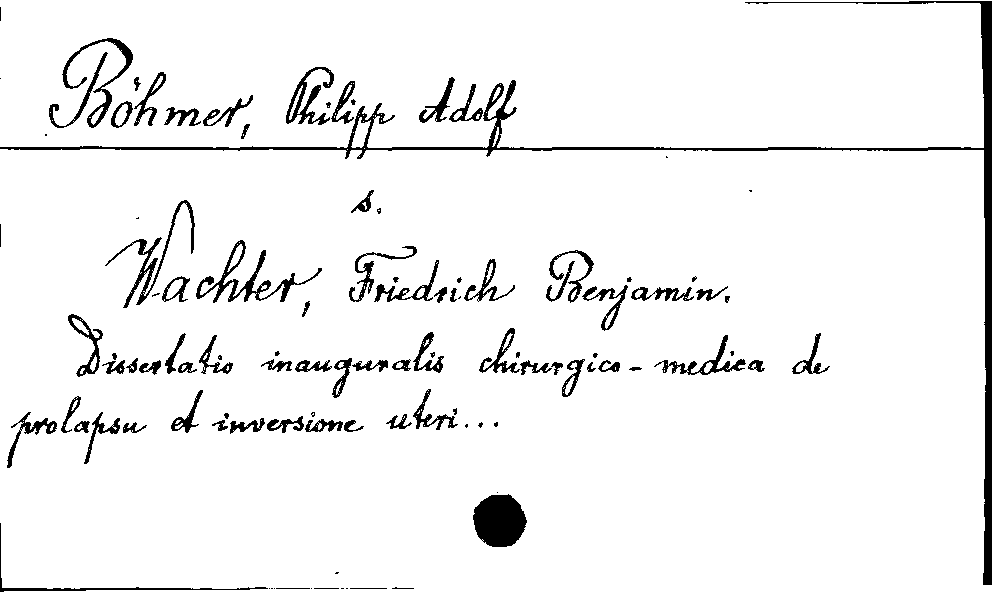 Böhmer, Philipp Adolf
s.
Wachter, Friedrich Benjamin.
Dissertatio inauguralis chirurgico-medica de
prolapsu et inversione uteri...